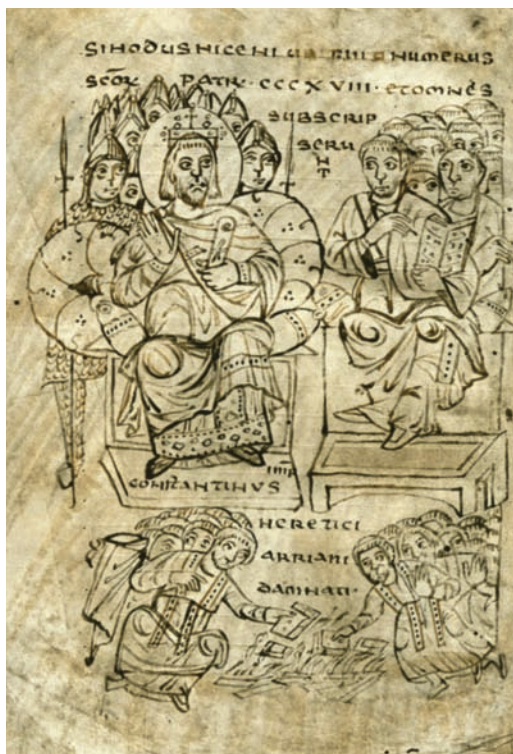 SINHODUS NICENI NUMERUS
SCOR PATR · CCCXVIII · ET OMNES
SUBSCRIP
SERU
NT
IMP
CONSTANTINUS
HERETICI
ARRIANI
DAMNATI ·